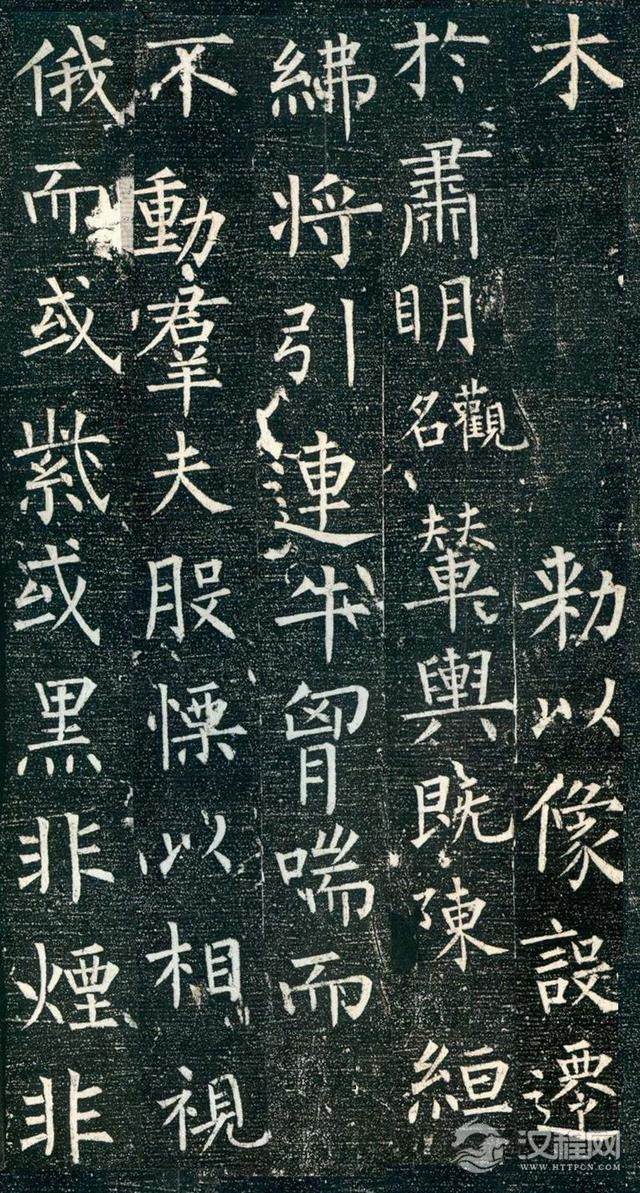 木 勑以像設遷
於肅明觀名輦輿既陳 絙
紼将引連牛胷喘而
不動羣夫股慄以相視
俄而或紫或黑非煙非
汉程网
WWW.HTTPCN.COM